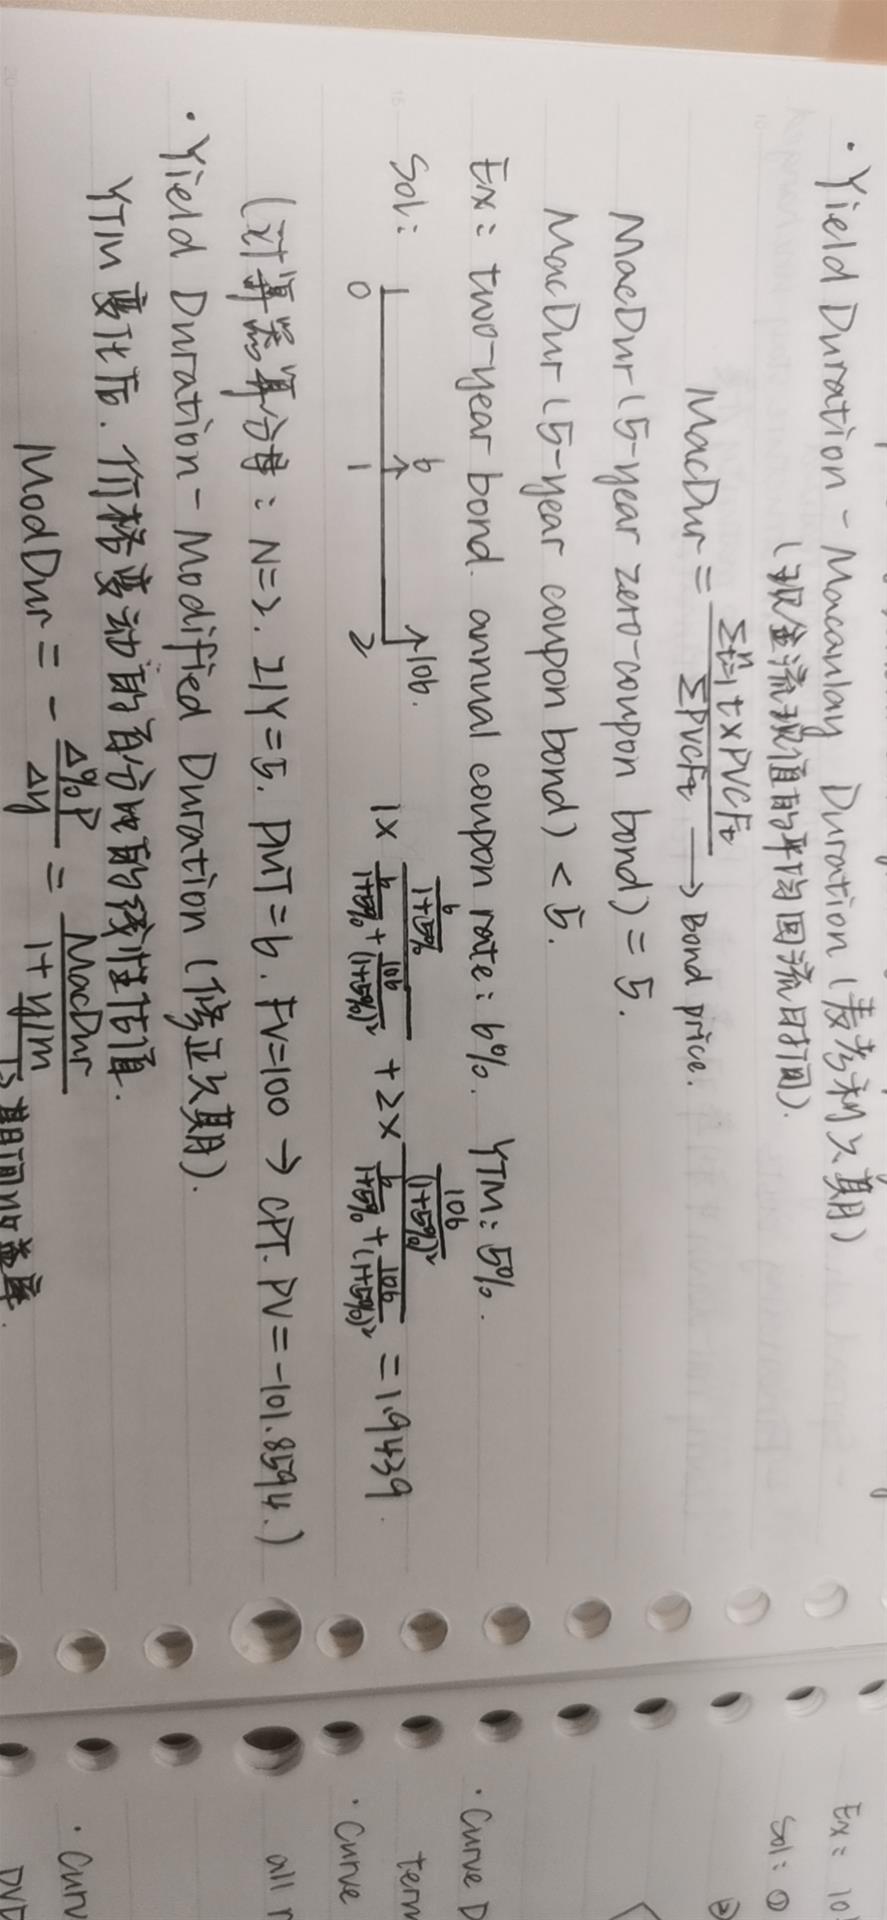 · Yield Duration - Macaulay Duration (麦考利久期)
(现金流现值的平均回流时间).
MacDur = \frac{Σ_{t=1}^{n} t × PVCF_t}{ΣPVCF_t} → Bond price.
MacDur (5-year zero-coupon bond) = 5.
MacDur (5-year coupon bond) < 5.
Ex: two-year bond. annual coupon rate: 6%. YTM: 5%.
Sol: 0 1 2 6 106. 1× \frac{\frac{6}{1+5%}}{\frac{6}{1+5%} + \frac{106}{(1+5%)^2}} + 2× \frac{\frac{106}{(1+5%)^2}}{\frac{6}{1+5%} + \frac{106}{(1+5%)^2}} = 1.9439.
(计算器算分母: N=2. I/Y=5. PMT=6. FV=100 → CPT. PV=-101.8594.)
· Yield Duration - Modified Duration (修正久期).
YTM 变化后. 价格变动的百分比的线性估值.
ModDur = - \frac{Δ%P}{Δy} = \frac{MacDur}{1+y/m}
期间收益率.
Ex: 10
Sol: ①
②
· Curve D
term
· Curve
all
· Curv